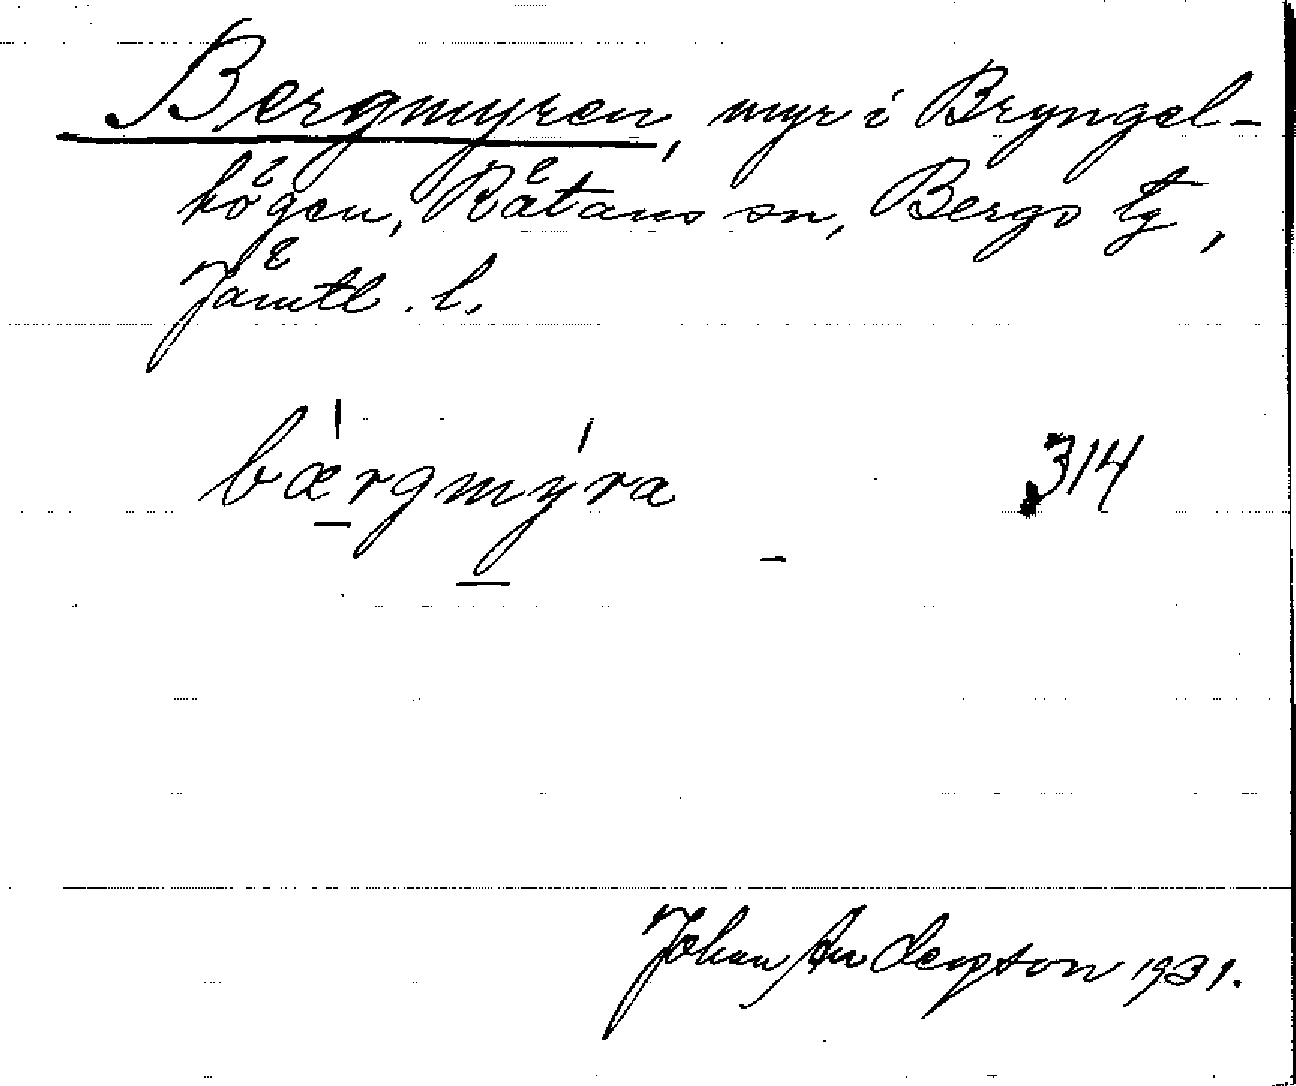 Bergmyren, myr i Bryngel-
högen, Rätans sn, Bergs tg,
Jämtl. l.
bærgmýra 314
Johan Anderszon 1931.